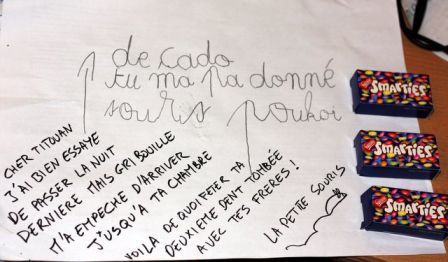 de cado
tu ma pa donné
souris poukoi
CHER TITOUAN
J'AI BIEN ESSAYE
DE PASSER LA NUIT
DERNIERE MAIS GRIBOUILLE
M'A EMPECHE D'ARRIVER
J'USQU'À TA CHAMBRE
VOILÀ DE QUOI FETER TA
DEUXIEME DENT TOMBÉE
AVEC TES FRERES !
LA PETITE SOURIS
Nestlé
SMARTIES
Nestlé
SMARTIES
Nestlé
SMARTIES